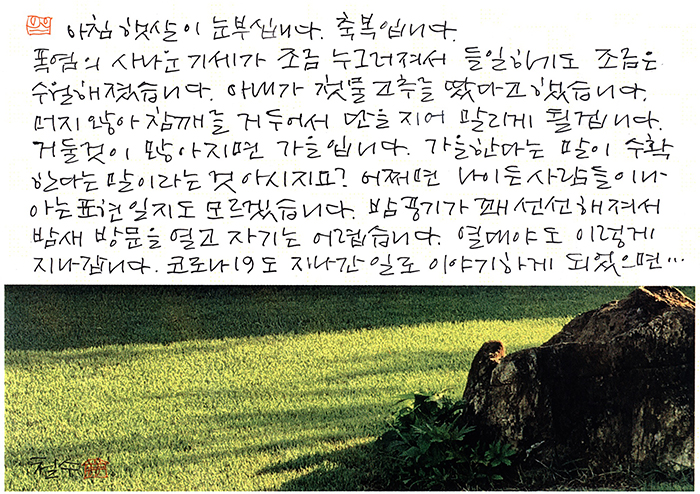 아침 햇살이 눈부십니다. 축복입니다.
폭염의 사나운 기세가 조금 누그러져서 들일하기도 조금은
수월해졌습니다. 아내가 첫물고추를 땄다고 했습니다.
머지 않아 참깨를 거두어서 단을 지어 말리게 될겝니다.
거둘것이 많아지면 가을입니다. 가을한다는 말이 수확
한다는 말이라는 것 아시지요? 어쩌면 나이든 사람들이나
아는 표현일지도 모르겠습니다. 밤공기가 꽤 선선해져서
밤새 방문을 열고 자기는 어렵습니다. 열대야도 이렇게
지나갑니다. 코로나19도 지나간 일로 이야기하게 되었으면…
철수